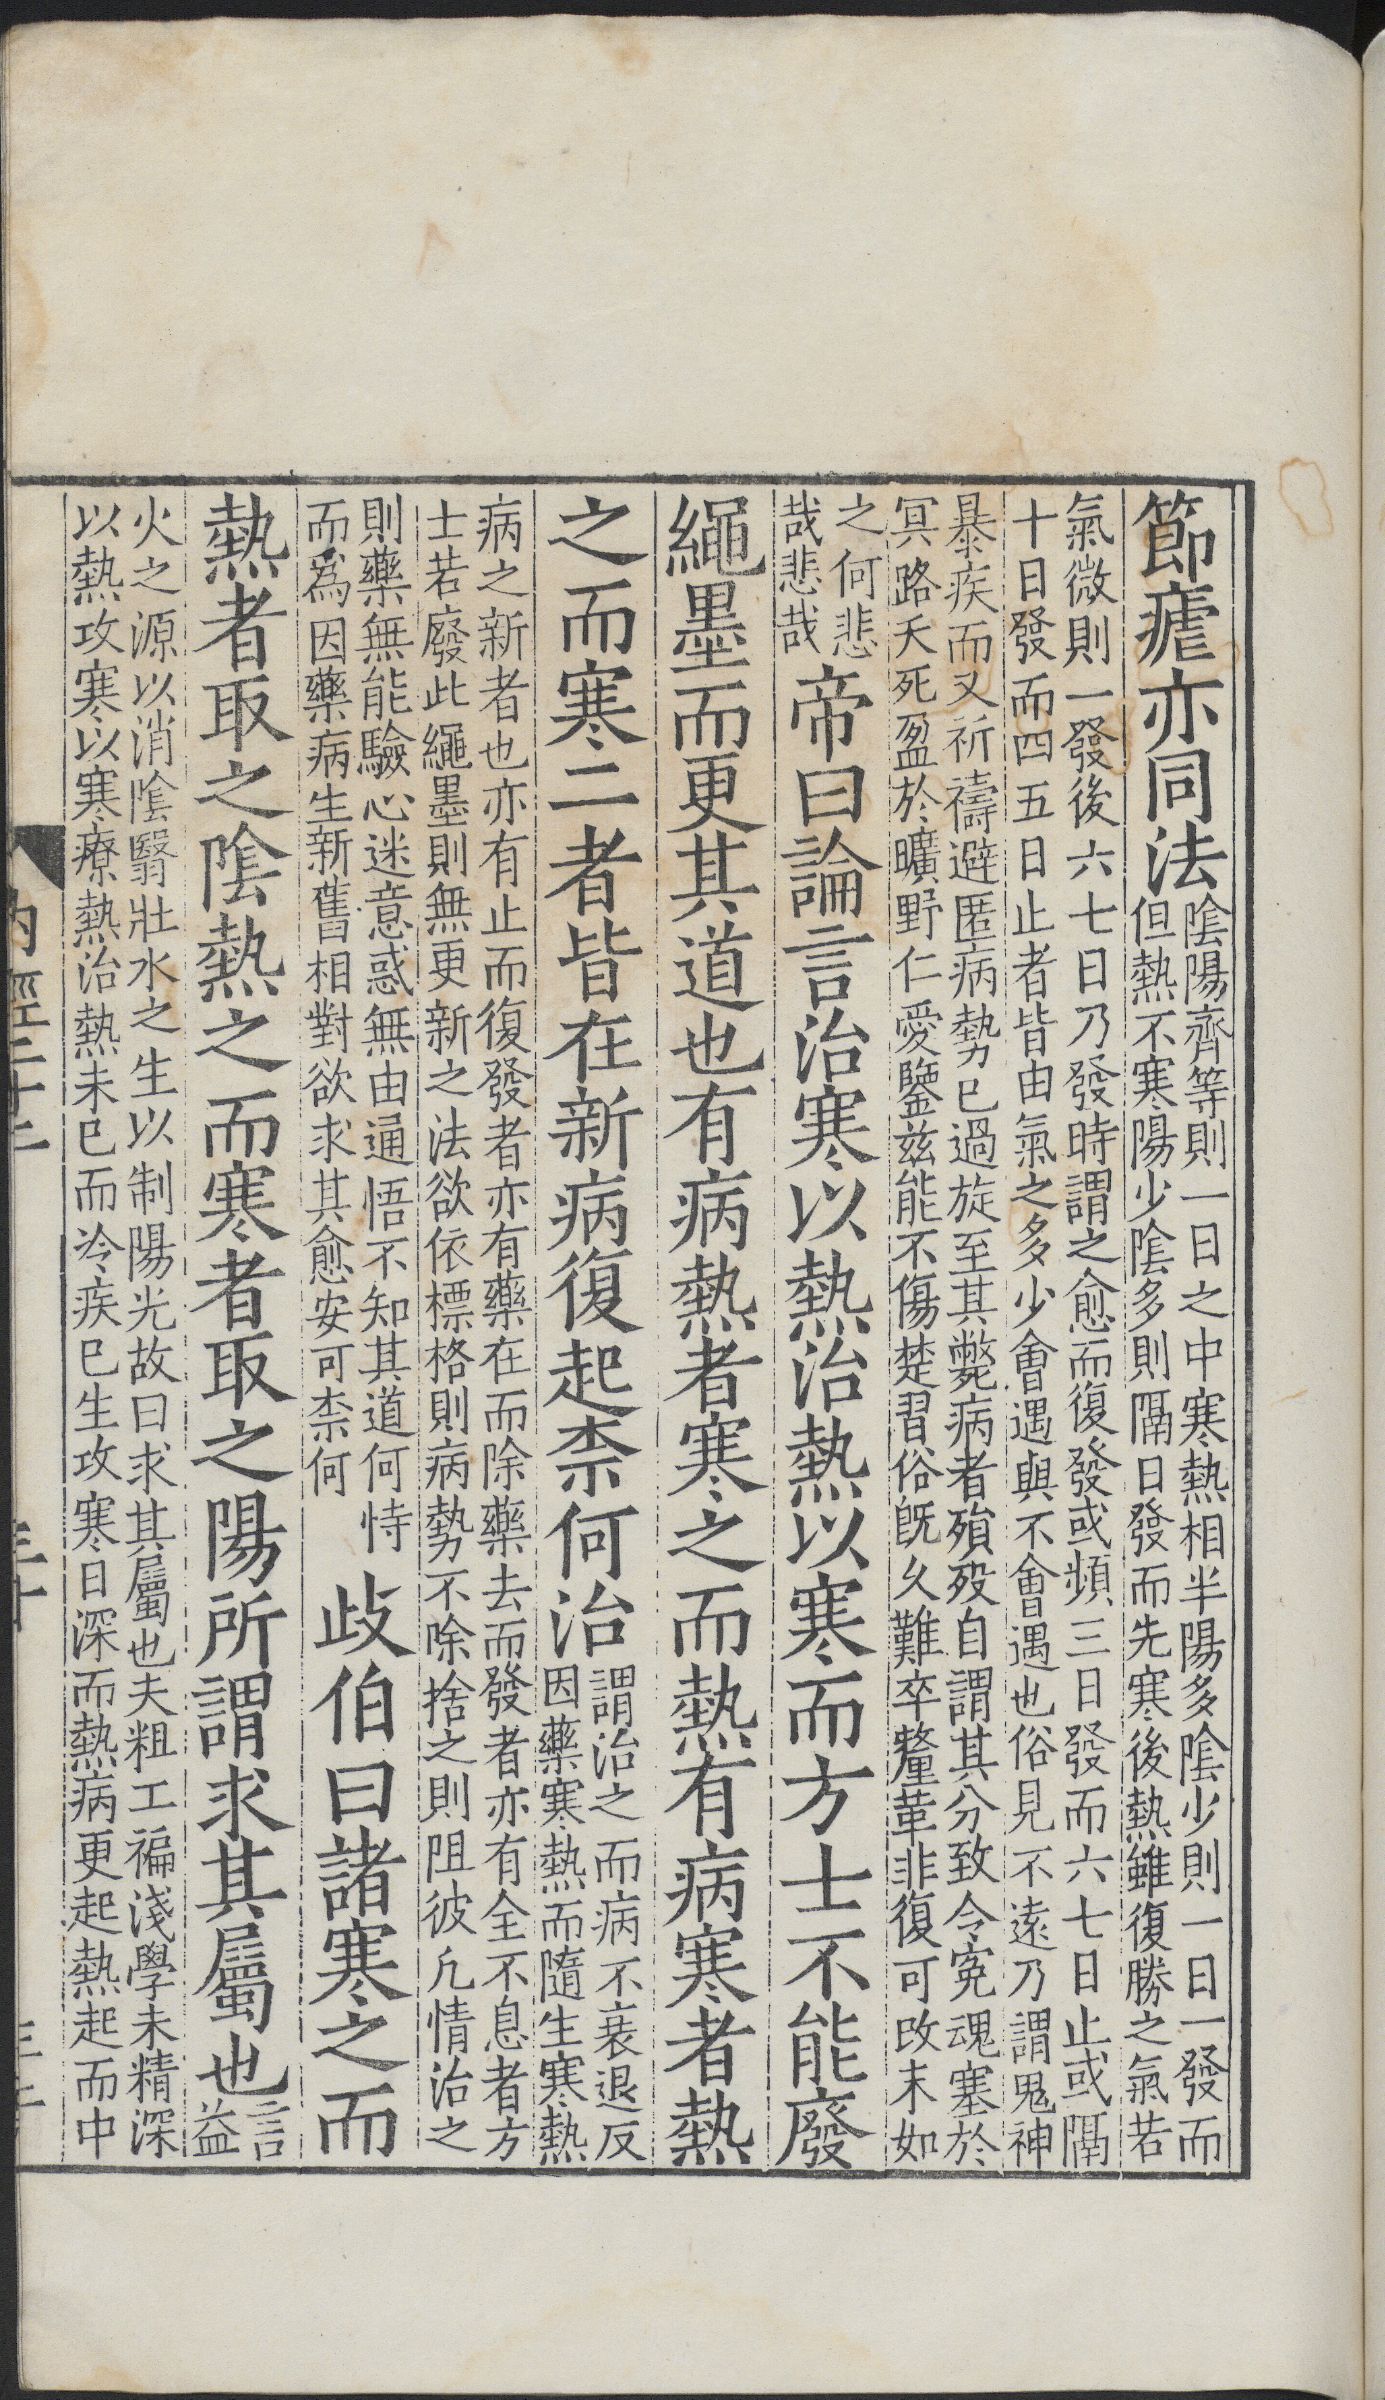 節瘧亦同法陰陽齊等則一日之中寒熱相半陽多陰少則一日一發而
但熱不寒陽少陰多則隔日發而先寒後熱雖復勝之氣若
氣微則一發後六七日乃發時謂之愈而復發或頻三日發而六七日止或隔
十日發而四五日止者皆由氣之多少會遇與不會遇也俗見不遠乃謂鬼神
暴疾而又祈禱避匿病勢已過旋至其斃病者殞歿自謂其分致令冤魂塞於
冥路夭死盈於曠野仁愛鑒茲能不傷楚習俗既久難卒釐革非復可改末如
之何悲
哉悲哉
帝曰論言治寒以熱治熱以寒而方士不能廢
繩墨而更其道也有病熱者寒之而熱有病寒者熱
之而寒二者皆在新病復起柰何治謂治之而病不衰退反
因藥寒熱而隨生寒熱
病之新者也亦有止而復發者亦有藥在而除藥去而發者亦有全不息者方
士若廢此繩墨則無更新之法欲依標格則病勢不除捨之則阻彼凡情治之
則藥無能驗心迷意惑無由通悟不知其道何恃
而爲因藥病生新舊相對欲求其愈安可柰何
歧伯曰諸寒之而
熱者取之陰熱之而寒者取之陽所謂求其屬也言
益
火之源以消陰翳壯水之生以制陽光故曰求其屬也夫粗工褊淺學未精深
以熱攻寒以寒療熱治熱未已而冷疾已生攻寒日深而熱病更起熱起而中
內經二十二